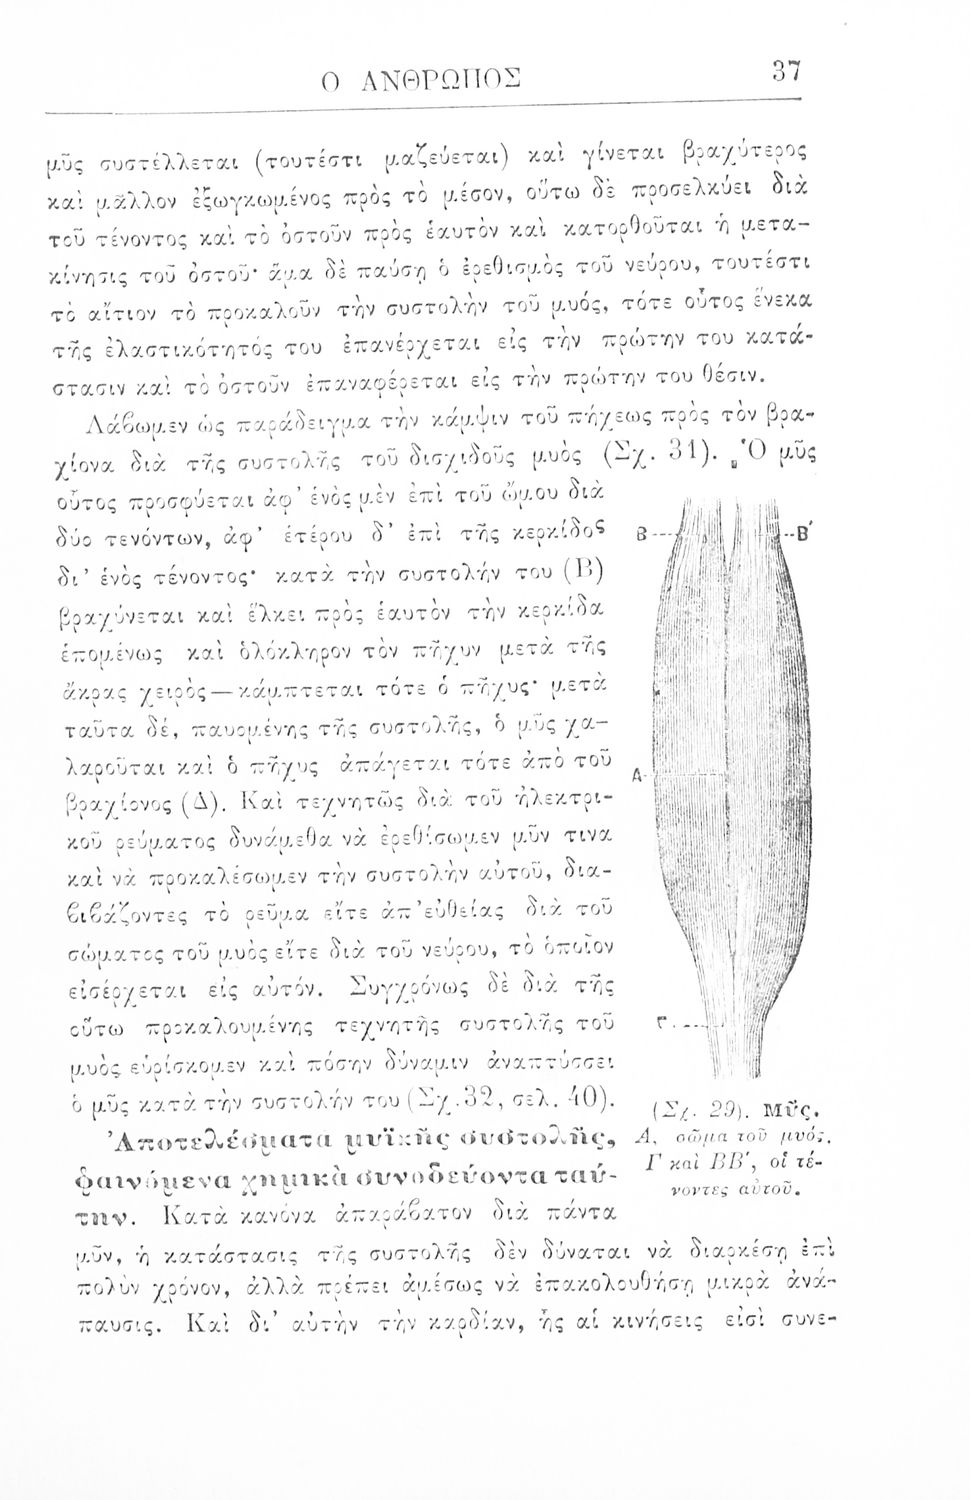 Ο ΑΝΘΡΩΠΟΣ 37
μῦς συστέλλεται (τουτέστι μαζεύεται) καὶ γίνεται βραχύτερος
καὶ μᾶλλον ἐξωγκωμένος πρὸς τὸ μέσον, οὕτω δὲ προσελκύει διὰ
τοῦ τένοντος καὶ τὸ ὀστοῦν πρὸς ἑαυτὸν καὶ κατορθοῦται ἡ μετα-
κίνησις τοῦ ὀστοῦ· ἅμα δὲ παύσῃ ὁ ἐρεθισμὸς τοῦ νεύρου, τουτέστι
τὸ αἴτιον τὸ προκαλοῦν τὴν συστολὴν τοῦ μυός, τότε οὗτος ἕνεκα
τῆς ἐλαστικότητός του ἐπανέρχεται εἰς τὴν πρώτην του κατά-
στασιν καὶ τὸ ὀστοῦν ἐπαναφέρεται εἰς τὴν πρώτην του θέσιν.
Λάβωμεν ὡς παράδειγμα τὴν κάμψιν τοῦ πήχεως πρὸς τὸν βρα-
χίονα διὰ τῆς συστολῆς τοῦ δισχιδοῦς μυὸς (Σχ. 31). Ὁ μῦς
οὗτος προσφύεται ἀφ’ ἑνὸς μὲν ἐπὶ τοῦ ὤμου διὰ
δύο τενόντων, ἀφ’ ἑτέρου δ’ ἐπὶ τῆς κερκίδος
δι’ ἑνὸς τένοντος· κατὰ τὴν συστολήν του (Β)
βραχύνεται καὶ ἕλκει πρὸς ἑαυτὸν τὴν κερκίδα
ἑπομένως καὶ ὁλόκληρον τὸν πῆχυν μετὰ τῆς
ἄκρας χειρὸς—κάμπτεται τότε ὁ πῆχυς· μετὰ
ταῦτα δέ, παυομένης τῆς συστολῆς, ὁ μῦς χα-
λαροῦται καὶ ὁ πῆχυς ἀπάγεται τότε ἀπὸ τοῦ
βραχίονος (Δ). Καὶ τεχνητῶς διὰ τοῦ ἠλεκτρι-
κοῦ ρεύματος δυνάμεθα νὰ ἐρεθίσωμεν μῦν τινα
καὶ νὰ προκαλέσωμεν τὴν συστολὴν αὐτοῦ, δια-
βιβάζοντες τὸ ρεῦμα εἴτε ἀπ’ εὐθείας διὰ τοῦ
σώματος τοῦ μυὸς εἴτε διὰ τοῦ νεύρου, τὸ ὁποῖον
εἰσέρχεται εἰς αὐτόν. Συγχρόνως δὲ διὰ τῆς
οὕτω προκαλουμένης τεχνητῆς συστολῆς τοῦ
μυὸς εὑρίσκομεν καὶ πόσην δύναμιν ἀναπτύσσει
ὁ μῦς κατὰ τὴν συστολήν του (Σχ. 32, σελ. 40).
Ἀποτελέσματα μυϊκῆς συστολῆς,
φαινόμενα χημικὰ συνοδεύοντα ταύ-
την. Κατὰ κανόνα ἀπαράβατον διὰ πάντα
μῦν, ἡ κατάστασις τῆς συστολῆς δὲν δύναται νὰ διαρκέσῃ ἐπὶ
πολὺν χρόνον, ἀλλὰ πρέπει ἀμέσως νὰ ἐπακολουθήσῃ μικρὰ ἀνά-
παυσις. Καὶ δι’ αὐτὴν τὴν καρδίαν, ἧς αἱ κινήσεις εἰσὶ συνε-
Β Β′
Α
Γ
(Σχ. 29). Μῦς.
Α, σῶμα τοῦ μυός.
Γ καὶ ΒΒ′, οἱ τέ-
νοντες αὐτοῦ.